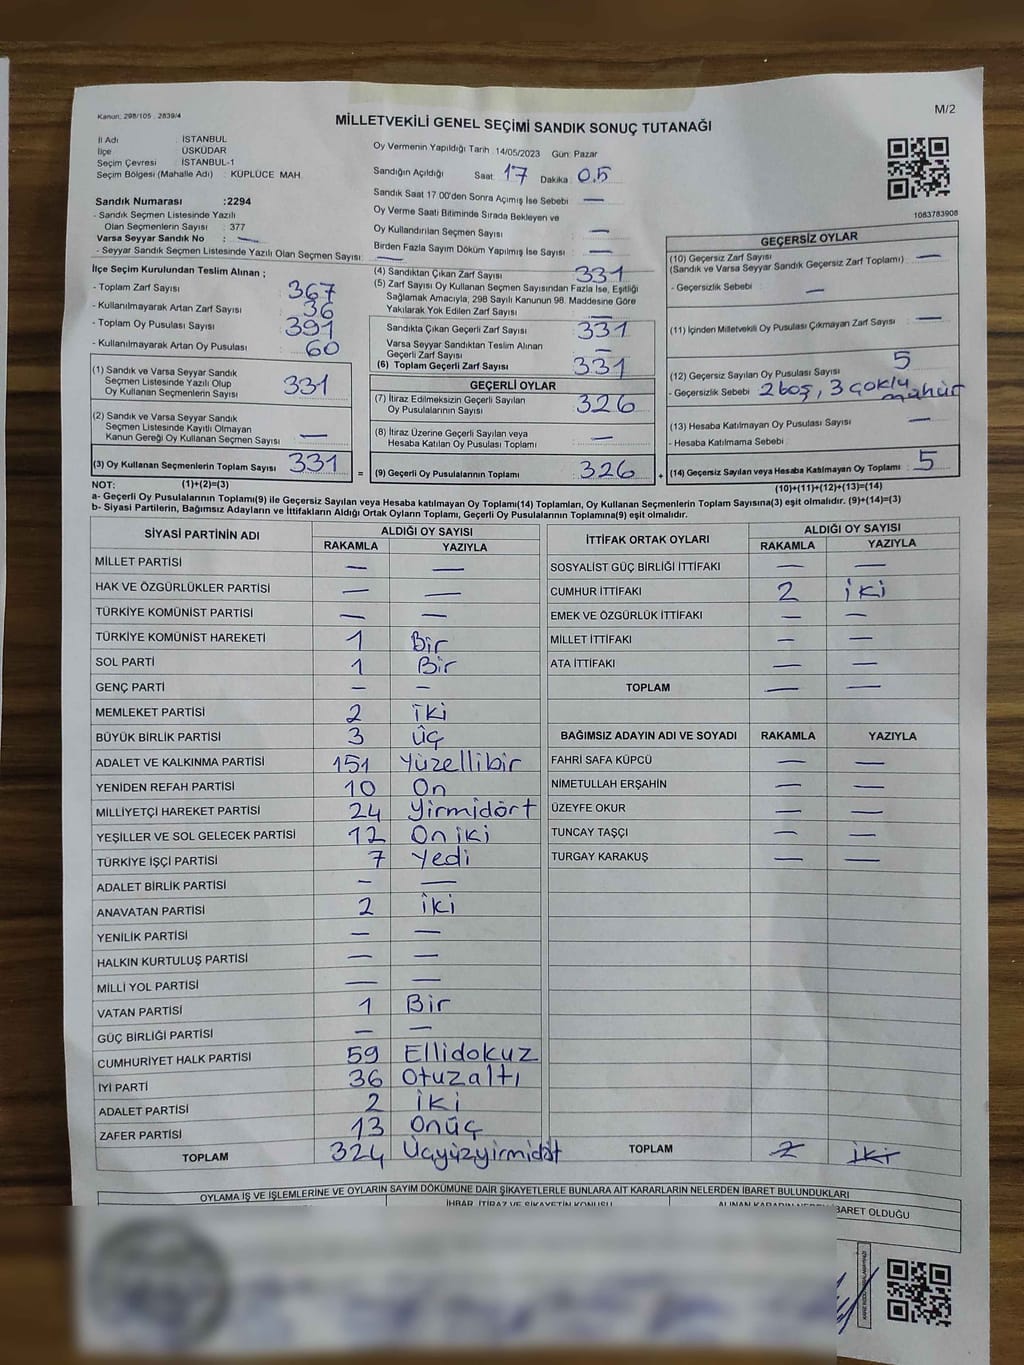 Kanun: 298/105 , 2839/4
M/2
MİLLETVEKİLİ GENEL SEÇİMİ SANDIK SONUÇ TUTANAĞI
İl Adı : İSTANBUL
İlçe : ÜSKÜDAR
Seçim Çevresi : İSTANBUL-1
Seçim Bölgesi (Mahalle Adı) : KÜPLÜCE MAH.
Sandık Numarası :2294
- Sandık Seçmen Listesinde Yazılı
Olan Seçmenlerin Sayısı : 377
Varsa Seyyar Sandık No : —
- Seyyar Sandık Seçmen Listesinde Yazılı Olan Seçmen Sayısı: —
İlçe Seçim Kurulundan Teslim Alınan ;
- Toplam Zarf Sayısı : 367
- Kullanılmayarak Artan Zarf Sayısı : 36
- Toplam Oy Pusulası Sayısı : 391
- Kullanılmayarak Artan Oy Pusulası : 60
(1) Sandık ve Varsa Seyyar Sandık
Seçmen Listesinde Yazılı Olup
Oy Kullanan Seçmenlerin Sayısı : 331
(2) Sandık ve Varsa Seyyar Sandık
Seçmen Listesinde Kayıtlı Olmayan
Kanun Gereği Oy Kullanan Seçmen Sayısı : —
(3) Oy Kullanan Seçmenlerin Toplam Sayısı : 331
Oy Vermenin Yapıldığı Tarih : 14/05/2023 Gün: Pazar
Sandığın Açıldığı Saat : 17 Dakika : 0.5
Sandık Saat 17:00'den Sonra Açımış İse Sebebi : —
Oy Verme Saati Bitiminde Sırada Bekleyen ve
Oy Kullandırılan Seçmen Sayısı : —
Birden Fazla Sayım Döküm Yapılmış İse Sayısı : —
(4) Sandıktan Çıkan Zarf Sayısı : 331
(5) Zarf Sayısı Oy Kullanan Seçmen Sayısından Fazla İse, Eşitliği
Sağlamak Amacıyla, 298 Sayılı Kanunun 98. Maddesine Göre
Yakılarak Yok Edilen Zarf Sayısı : —
Sandıkta Çıkan Geçerli Zarf Sayısı : 331
Varsa Seyyar Sandıktan Teslim Alınan
Geçerli Zarf Sayısı : —
(6) Toplam Geçerli Zarf Sayısı : 331
GEÇERLİ OYLAR
(7) İtiraz Edilmeksizin Geçerli Sayılan
Oy Pusulalarının Sayısı : 326
(8) İtiraz Üzerine Geçerli Sayılan veya
Hesaba Katılan Oy Pusulası Toplamı : —
= (9) Geçerli Oy Pusulalarının Toplamı : 326 +
1083783908
GEÇERSİZ OYLAR
(10) Geçersiz Zarf Sayısı
(Sandık ve Varsa Seyyar Sandık Geçersiz Zarf Toplamı) : —
- Geçersizlik Sebebi : —
(11) İçinden Milletvekili Oy Pusulası Çıkmayan Zarf Sayısı : —
(12) Geçersiz Sayılan Oy Pusulası Sayısı : 5
- Geçersizlik Sebebi : 2 boş, 3 çoklu
mühür
(13) Hesaba Katılmayan Oy Pusulası Sayısı : —
- Hesaba Katılmama Sebebi :
(14) Geçersiz Sayılan veya Hesaba Katılmayan Oy Toplamı : 5
NOT: (1)+(2)=(3) (10)+(11)+(12)+(13)=(14)
a- Geçerli Oy Pusulalarının Toplamı(9) ile Geçersiz Sayılan veya Hesaba katılmayan Oy Toplamı(14) Toplamları, Oy Kullanan Seçmenlerin Toplam Sayısına(3) eşit olmalıdır. (9)+(14)=(3)
b- Siyasi Partilerin, Bağımsız Adayların ve İttifakların Aldığı Ortak Oyların Toplamı, Geçerli Oy Pusulalarının Toplamına(9) eşit olmalıdır.
SİYASİ PARTİNİN ADI ALDIĞI OY SAYISI
RAKAMLA YAZIYLA
MİLLET PARTİSİ — —
HAK VE ÖZGÜRLÜKLER PARTİSİ — —
TÜRKİYE KOMÜNİST PARTİSİ — —
TÜRKİYE KOMÜNİST HAREKETİ 1 Bir
SOL PARTİ 1 Bir
GENÇ PARTİ — —
MEMLEKET PARTİSİ 2 İki
BÜYÜK BİRLİK PARTİSİ 3 Üç
ADALET VE KALKINMA PARTİSİ 151 Yüzellibir
YENİDEN REFAH PARTİSİ 10 On
MİLLİYETÇİ HAREKET PARTİSİ 24 Yirmidört
YEŞİLLER VE SOL GELECEK PARTİSİ 12 On iki
TÜRKİYE İŞÇİ PARTİSİ 7 Yedi
ADALET BİRLİK PARTİSİ — —
ANAVATAN PARTİSİ 2 İki
YENİLİK PARTİSİ — —
HALKIN KURTULUŞ PARTİSİ — —
MİLLİ YOL PARTİSİ — —
VATAN PARTİSİ 1 Bir
GÜÇ BİRLİĞİ PARTİSİ — —
CUMHURİYET HALK PARTİSİ 59 Ellidokuz
İYİ PARTİ 36 Otuzaltı
ADALET PARTİSİ 2 İki
ZAFER PARTİSİ 13 Onüç
TOPLAM 324 Üçyüzyirmidört
İTTİFAK ORTAK OYLARI ALDIĞI OY SAYISI
RAKAMLA YAZIYLA
SOSYALİST GÜÇ BİRLİĞİ İTTİFAKI — —
CUMHUR İTTİFAKI 2 iki
EMEK VE ÖZGÜRLÜK İTTİFAKI — —
MİLLET İTTİFAKI — —
ATA İTTİFAKI — —
TOPLAM — —
BAĞIMSIZ ADAYIN ADI VE SOYADI RAKAMLA YAZIYLA
FAHRİ SAFA KÜPCÜ — —
NİMETULLAH ERŞAHİN — —
ÜZEYFE OKUR — —
TUNCAY TAŞÇI — —
TURGAY KARAKUŞ — —
TOPLAM 2 İki
OYLAMA İŞ VE İŞLEMLERİNE VE OYLARIN SAYIM DÖKÜMÜNE DAİR ŞİKAYETLERLE BUNLARA AİT KARARLARIN NELERDEN İBARET BULUNDUKLARI
İHBAR, İTİRAZ VE ŞİKAYETİN KONUSU
BARET OLDUĞU